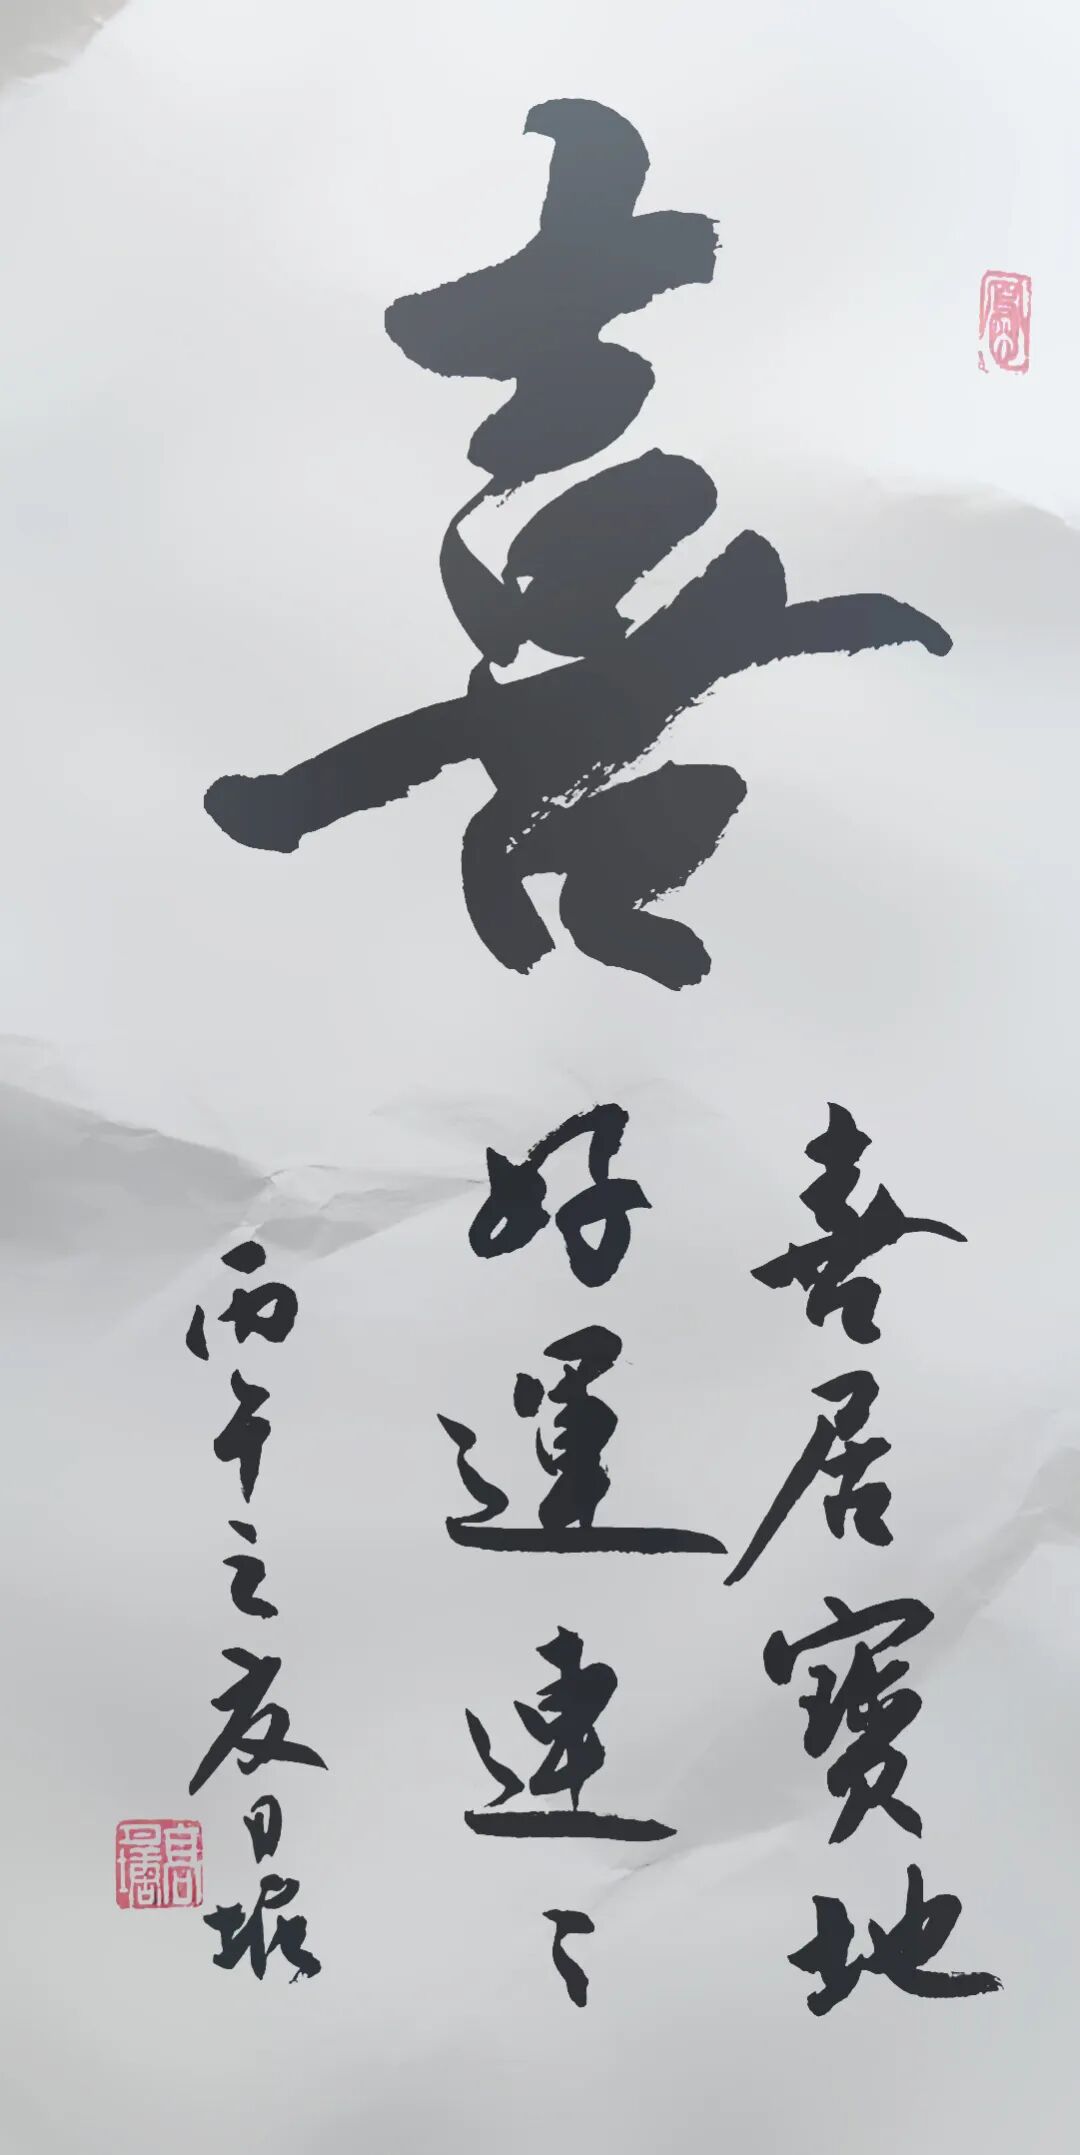 喜
喜居寶地
好運連〻
丙午之夏日